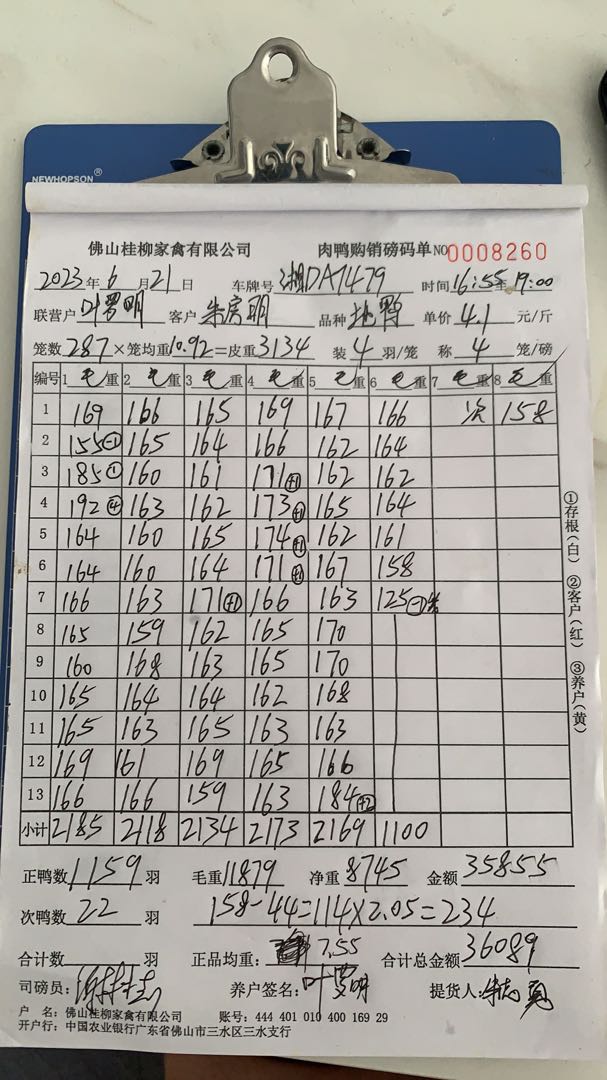 NEWHOPSON®
佛山桂柳家禽有限公司 肉鸭购销磅码单 NO 0008260
2023年6月21日 车牌号 湘DA7479 时间 16:55至19:00
联营户 叶罗明 客户 品种 单价 4.1 元/斤
笼数 287 ×笼均重 10.92 =皮重 3134 装 4 羽/笼 称 4 笼/磅
编号 1 毛重 2 毛重 3 毛重 4 毛重 5 毛重 6 毛重 7 毛重 8 毛重
1 169 166 165 169 167 166 次 158
2 155 165 164 166 162 164
3 185 160 161 171(+1) 162 162
4 192 163 162 173(+1) 165 164
5 164 160 165 174(+1) 162 161
6 164 160 164 171(+1) 167 158
7 166 163 171(+1) 166 163 125
8 165 159 162 165 170
9 160 168 163 165 170
10 165 164 164 162 168
11 165 163 165 163 163
12 169 161 169 165 166
13 166 166 159 163 184(+2)
小计 2185 2118 2134 2173 2169 1100
正鸭数 1159 羽 毛重 11879 净重 8745 金额 35855
次鸭数 22 羽 158-44=114×2.05=234
合计数 羽 正品均重: 7.55 合计总金额 36089
司磅员: 养户签名: 叶罗明 提货人:
户 名: 佛山桂柳家禽有限公司 账号: 444 401 010 400 169 29
开户行: 中国农业银行广东省佛山市三水区三水支行
①存根(白) ②客户(红) ③养户(黄)